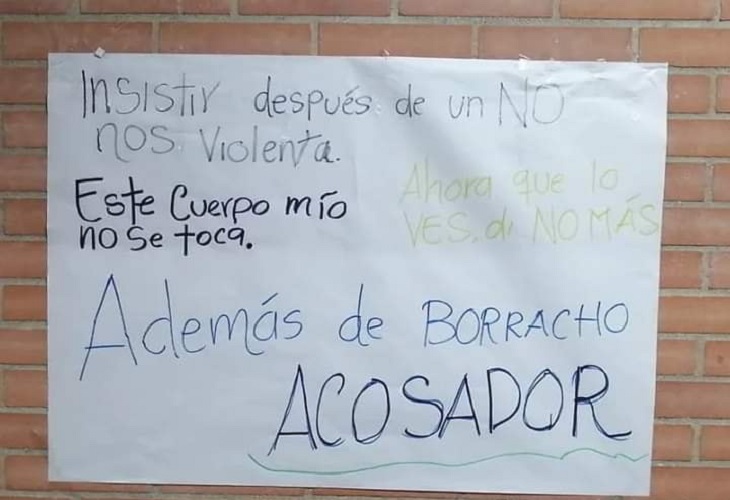 InSIStir después de un NO
nos Violenta.
Este Cuerpo mío
no Se toca.
Ahora que lo
VES, di NO MÁS
Además de BORRACHO
ACOSADOR